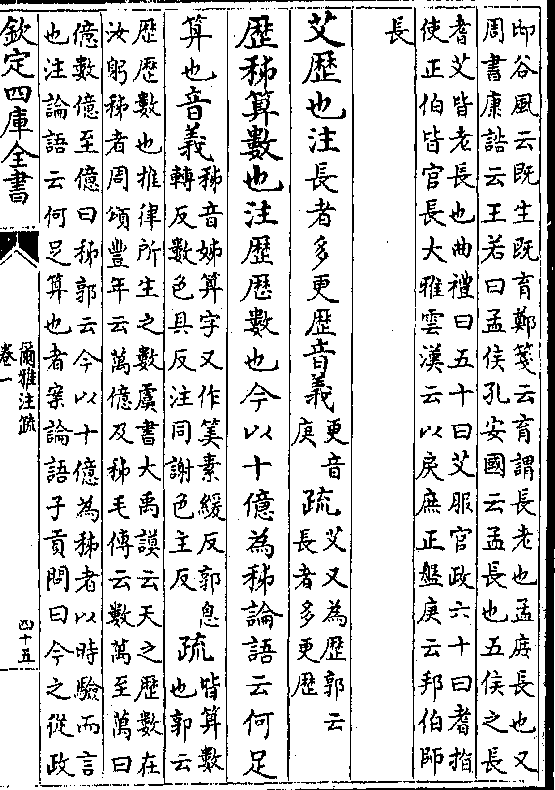 邱谷風云既生既育鄭箋云育謂長老也孟庻長也又
周書康誥云王若曰孟侯孔安國云孟長也五侯之長
耆艾皆老長也曲禮曰五十曰艾服官政六十曰耆指
使正伯皆官長大雅雲漢云以戾庶正盤庚云邦伯師
長
艾歴也注長者多更歴音義更音
庚疏艾又為歴郭云
長者多更歴
歴秭算數也注歴歴數也今以十億為秭論語云何足
算也音義秭音姊算字又作筭素緩反郭息
轉反數色具反注同謝色主反疏皆算數
也郭云
歴歴數也推律所生之數虞書大禹謨云天之歴數在
汝躬秭者周頌豐年云萬億及秭毛傳云數萬至萬曰
億數億至億曰秭郭云今以十億為秭者以時驗而言
也注論語云何足算也者案論語子貢問曰今之從政
欽定四庫全書
爾雅注疏
卷一
四十五